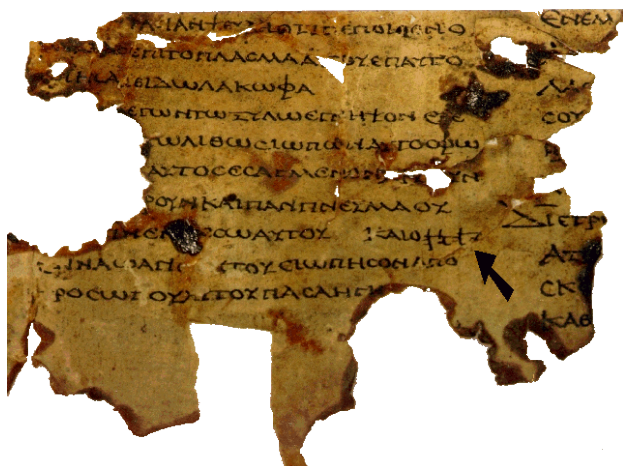 ΣΙΑΝΨΕΥΔΗΟΤΙΠΕΠΟΙΘΕΝΟ
ΕΠΙΤΟΠΛΑΣΜΑΑΥΤΟΥΕΠΑΥΤΟ
ΕΙΔΩΛΑΚΩΦΑ
ΕΓΩΝΤΩΞΥΛΩΕΓΝΗΨΟΝΕΞΕ
ΤΩΛΙΘΩΣΙΩΠΩΝΑΥΤΟΦΩ
ΕΣΑΓΜΕΝΟΝ
ΡΟΝΚΑΙΠΑΝΠΝΕΥΜΑΟΥΚ
ΣΩΑΥΤΟΥ ΚΑΙΟ𐤉𐤄𐤅𐤄
ΝΑΩΑΓΙ ΤΟΥΣΙΩΠΗΣΟΝΑΠΟ
ΡΟΣΩΠΟΥΑΥΤΟΥΠΑΣΑΗΓΗ
ΕΝΕΜ
ΣΟΥ
ΔΙΕΤΡ
ΑΠ
ΣΚ
ΚΑΘ